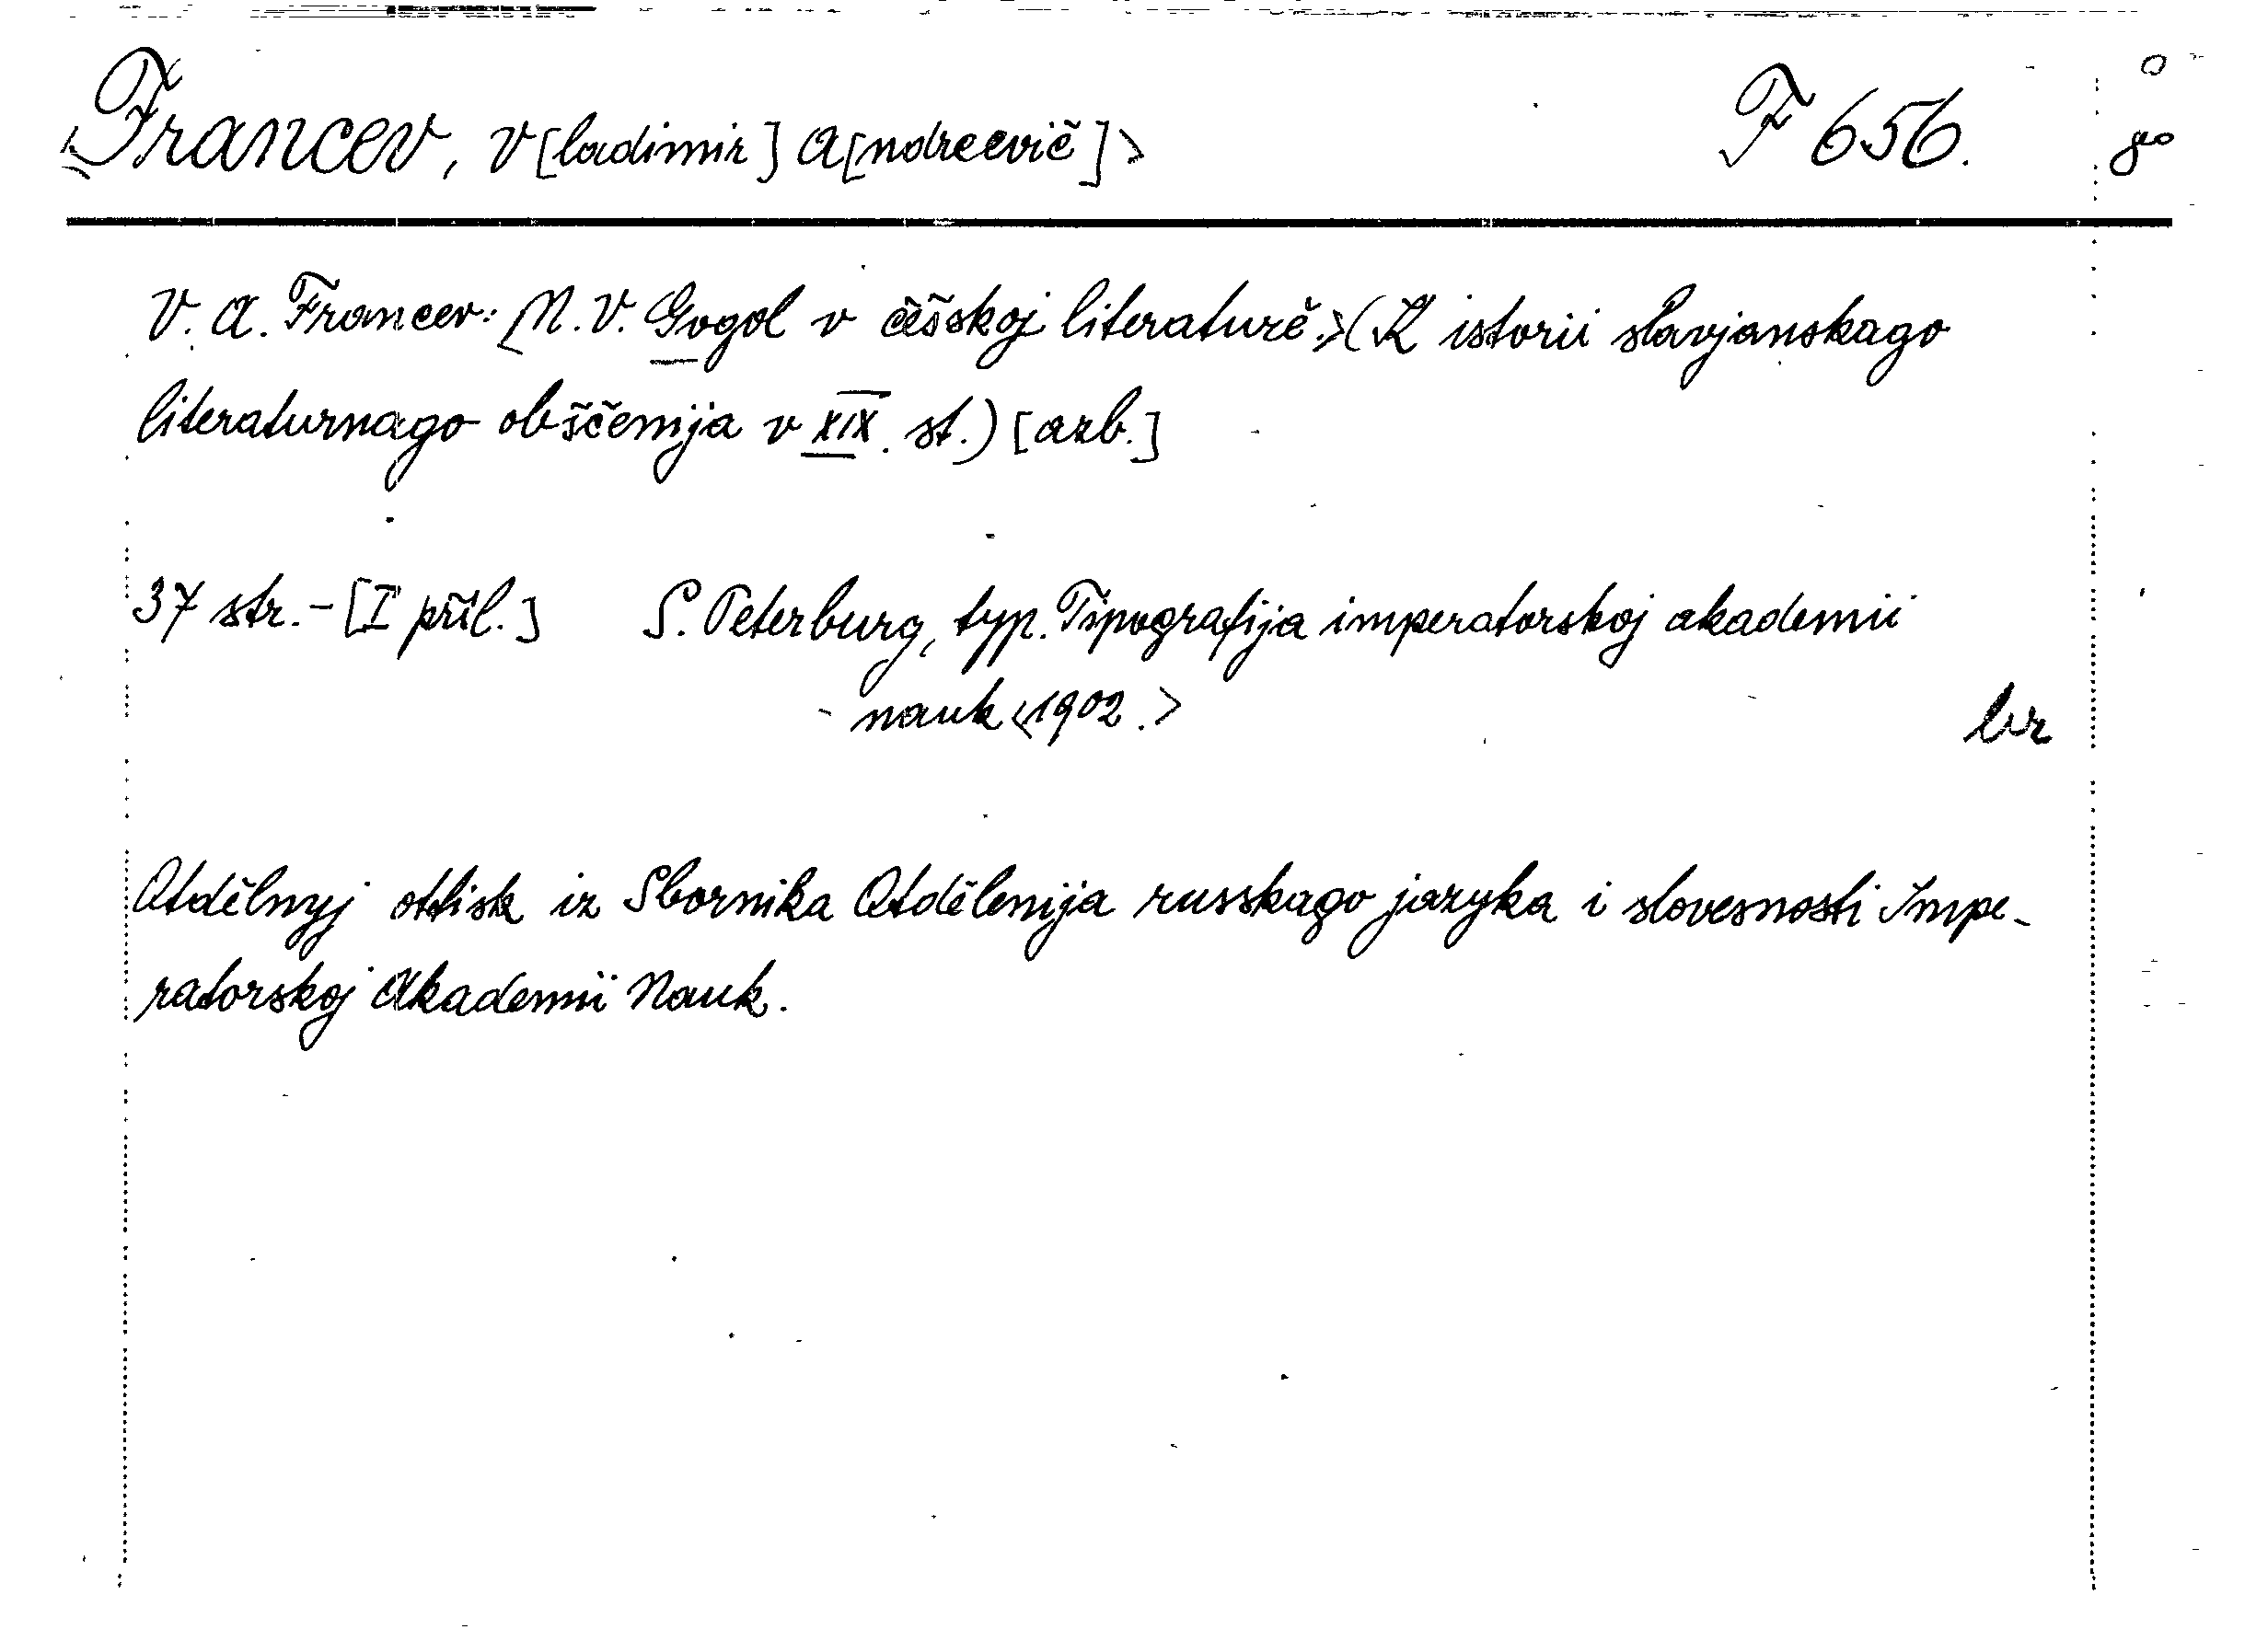 <Francev, V[ladimir] A[ndreevič]> F 656.
V. A. Francev: [N. V. Gogol v čěšskoj literaturě.>(K istorii slavjanskago
literaturnago obščenija v XIX. st.) [azb.]
37 str. - [I příl.] S. Peterburg, typ. Tipografija imperatorskoj akademii
nauk <1902.>
br
Otdělnyj ottisk iz Sbornika Otdělenija russkago jazyka i slovesnosti Impe-
ratorskoj Akademii Nauk.